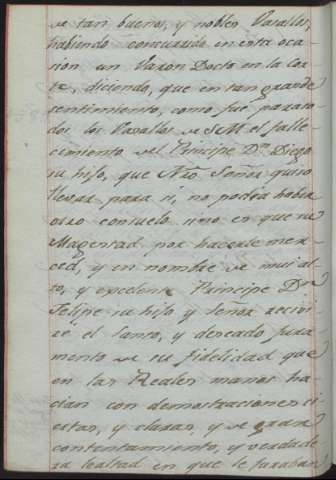 de tan buenos, y nobles Vasallos,
habiendo concurrido en esta oca
sion un Varon Docto en la Cor
te, diciendo, que en tan grande
sentimiento, como fué para to
dos los Vasallos de S.M. el falle
cimiento del Principe Dn. Diego
su hijo, que Nro. Señor quiso
llevar para sí, no podia haber
otro consuelo sino en que su
Magestad por hacerle mer
ced, y en nombre de mui al
to, y excelente Principe Dn.
Felipe su hijo y Señor recivi
ré el santo, y deseado jura
mento de su fidelidad que
en las Reales manos ha
cian con demostraciones ci
ertas, y claras, y de gran
contentamiento, y verdade
ra lealtad en que le juraban